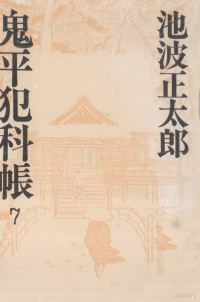 池波正太郎
鬼平犯科帳
7